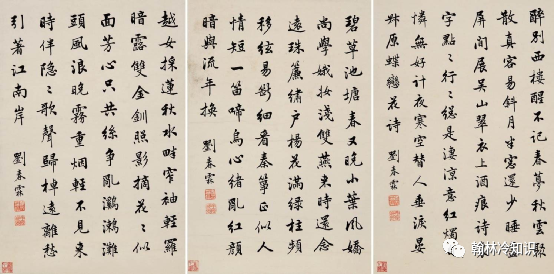 醉別西樓醒不記春夢秋雲聚
散真容易斜月半窗還少睡畫
屏閒展吳山翠衣上酒痕詩裏
字點〻行〻總是淒涼意紅燭自
憐無好計夜寒空替人垂淚晏
叔原蝶戀花詩 劉春霖
碧草池塘春又晚小葉風嬌
尚學娥妝淺雙燕來時還念
遠珠簾繡戶楊花滿綠柱頻
移絃易斷細看秦箏正似人
情短一笛啼烏心緒亂紅顏
暗與流年換 劉春霖
越女採蓮秋水畔窄袖輕羅
暗露雙金釧照影摘花〻似
面芳心只共絲爭亂鸂鶒灘
頭風浪晚霧重煙輕不見來
時伴隱〻歌聲歸棹遠離愁
引著江南岸 劉春霖
翰林冷知识